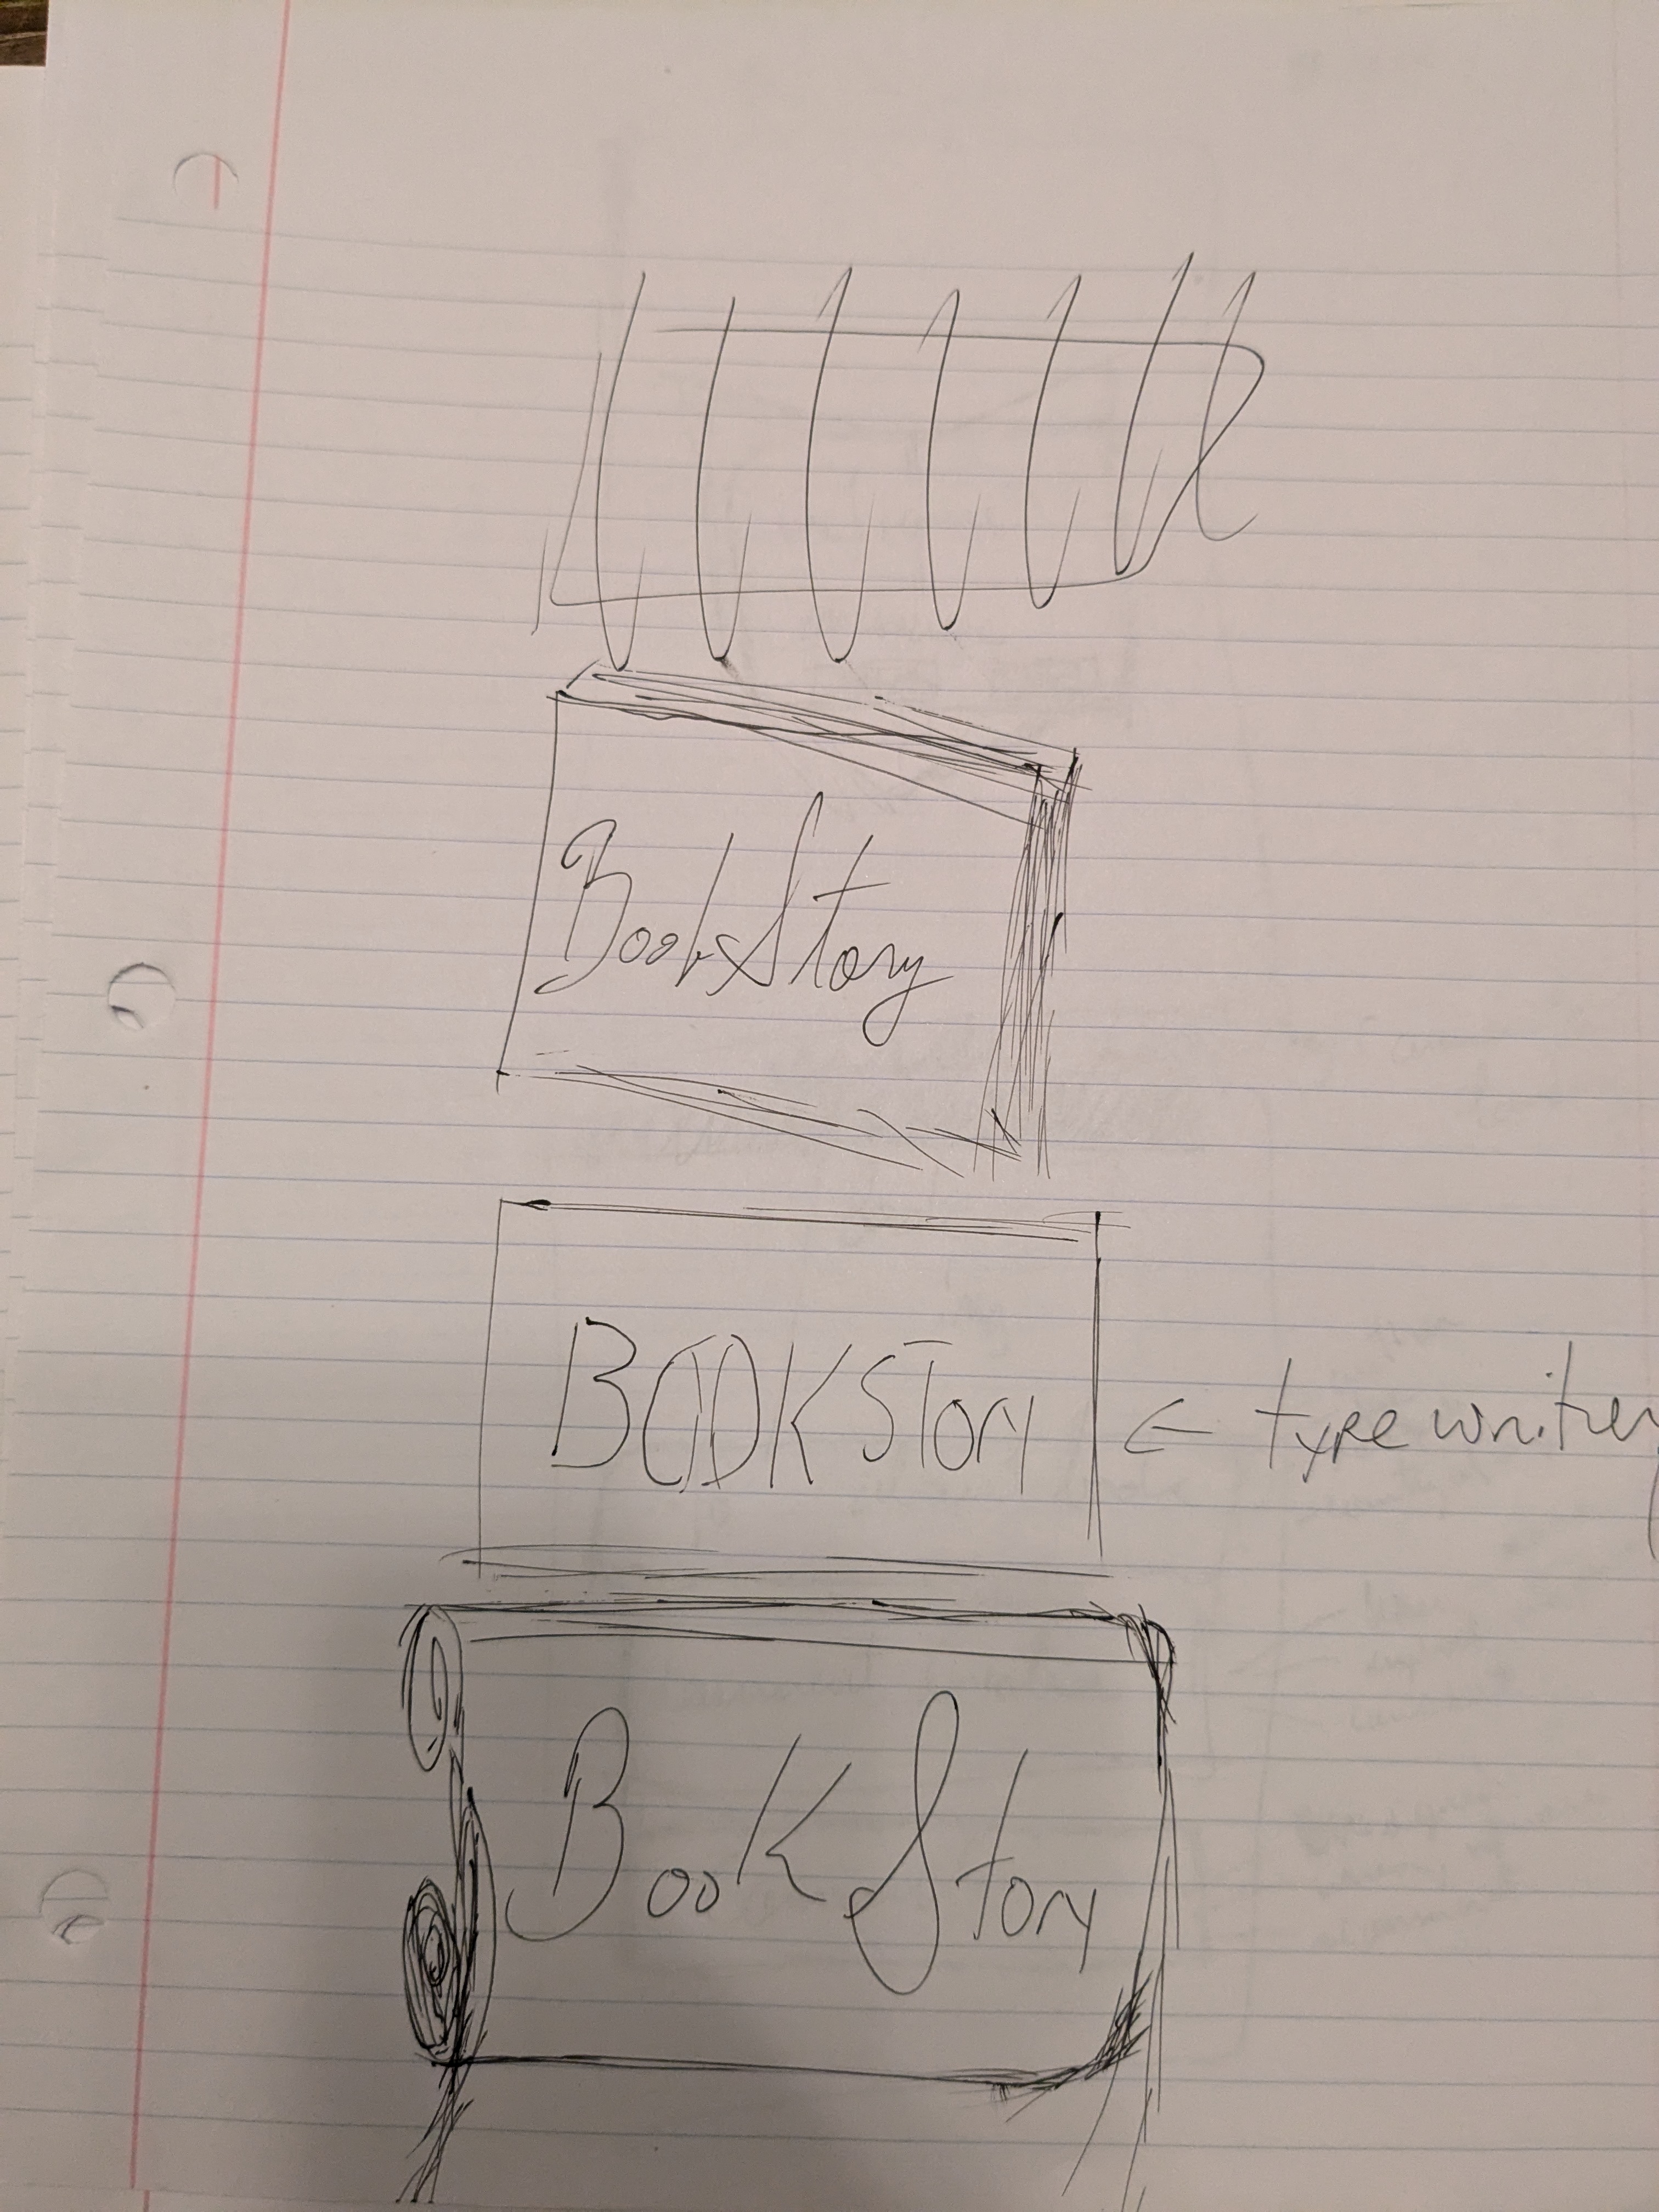 BookStory
BOOKSTory ← typewriter
BooKStory